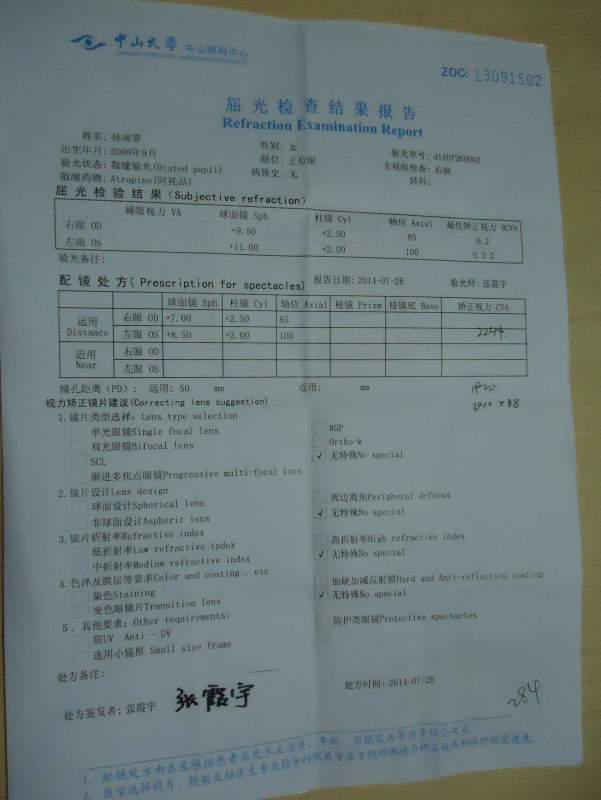 中山大学 中山眼科中心
ZOC: 13091502
屈光检查结果报告
Refraction Examination Report
姓名: 孙雨霏 性别: 女 验光单号: d1407260002
出生年月: 2008年9月 眼位: 正位眼 主视眼检查: 右眼
验光状态: 散瞳验光(Diated pupil) 病族史: 无 转科:
散瞳药物: Atropine(阿托品)
屈光检验结果(Subjective refraction)
裸眼视力 VA 球面镜 Sph 柱镜 Cyl 轴位 Axial 最佳矫正视力 BCVA
右眼 OD +9.50 +2.50 85 0.2
左眼 OS +11.00 +2.00 100 0.2-2
验光备注:
配镜处方(Prescription for spectacles) 报告日期: 2014-07-26 验光师: 张霞宇
球面镜 Sph 柱镜 Cyl 轴位 Axial 棱镜 Prism 棱镜底 Base 矫正视力 CVA
远用 Distance 右眼 OD +7.00 +2.50 85
左眼 OS +8.50 +2.00 100
近用 Near 右眼 OD
左眼 OS
瞳孔距离(PD): 远用: 50 mm 近用: mm
视力矫正镜片建议(Correcting lens suggestion)
1.镜片类型选择: Lens type selection
单光眼镜Single focal lens RGP
双光眼镜Bifocal lens Ortho-k
SCL ✓ 无特殊No special
渐进多焦点眼镜Progressive multi-focal lens
2.镜片设计Lens design 周边离焦Peripheral defocus
球面设计Spherical lens ✓ 无特殊No special
非球面设计Aspheric lens
3.镜片折射率Refractive index 高折射率High refractive index
低折射率Low refractive index ✓ 无特殊No special
中折射率Medium refractive index
4.色泽及膜层等要求Color and coating . etc 加硬加减反射膜Hard and Anti-reflection coating
染色Staining ✓ 无特殊No special
变色眼镜片Transition lens
5. 其他要求: Other requirements: 防护类眼镜Protective spectacles
防UV Anti - UV
选用小镜框 Small size frame
处方备注:
处方签发者: 张霞宇 张霞宇 处方时间: 2014-07-26
284
1. 配镜处方由医生根据患者屈光不正性质、年龄、用眼需求等因素综合决定。
2. 医学选择镜片、镜架及按医生专业指导的配戴方法才能确保视力矫正效果和保护视觉进展。